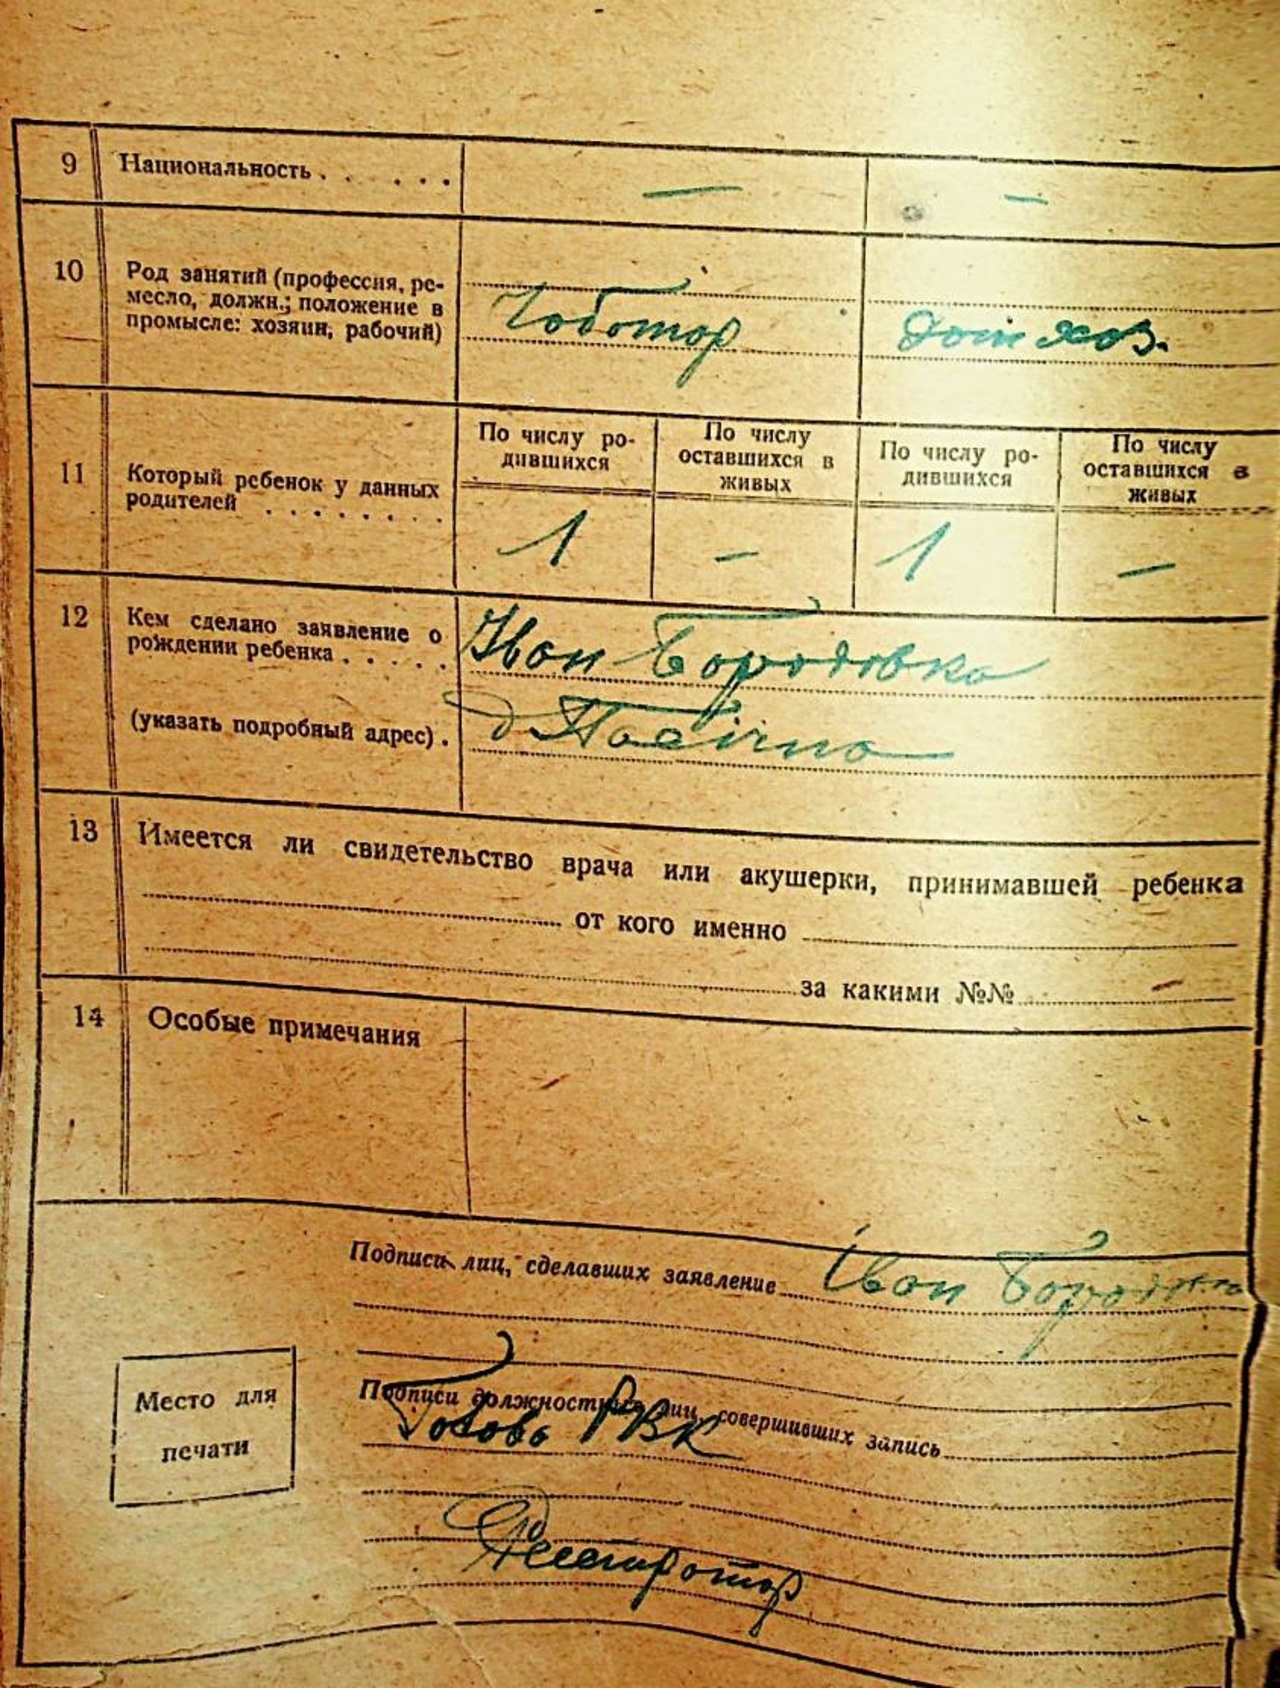 9 Национальность . . . . . — —
10 Род занятий (профессия, ре-
месло, должн.; положение в
промысле: хозяин, рабочий)
Чоботор дом хоз.
По числу ро-
дившихся
По числу
оставшихся в
живых
По числу ро-
дившихся
По числу
оставшихся в
живых
11 Который ребенок у данных
родителей . . . . . . . .
1 — 1 —
12 Кем сделано заявление о
рождении ребенка . . . . .
Іван Бородовка
(указать подробный адрес) .
д
13 Имеется ли свидетельство врача или акушерки, принимавшей ребенка
от кого именно
за какими №№ —
14 Особые примечания
Подписи лиц, сделавших заявление Іван
Подписи должностных лиц, совершивших запись
Голова РВК
Место для
печати